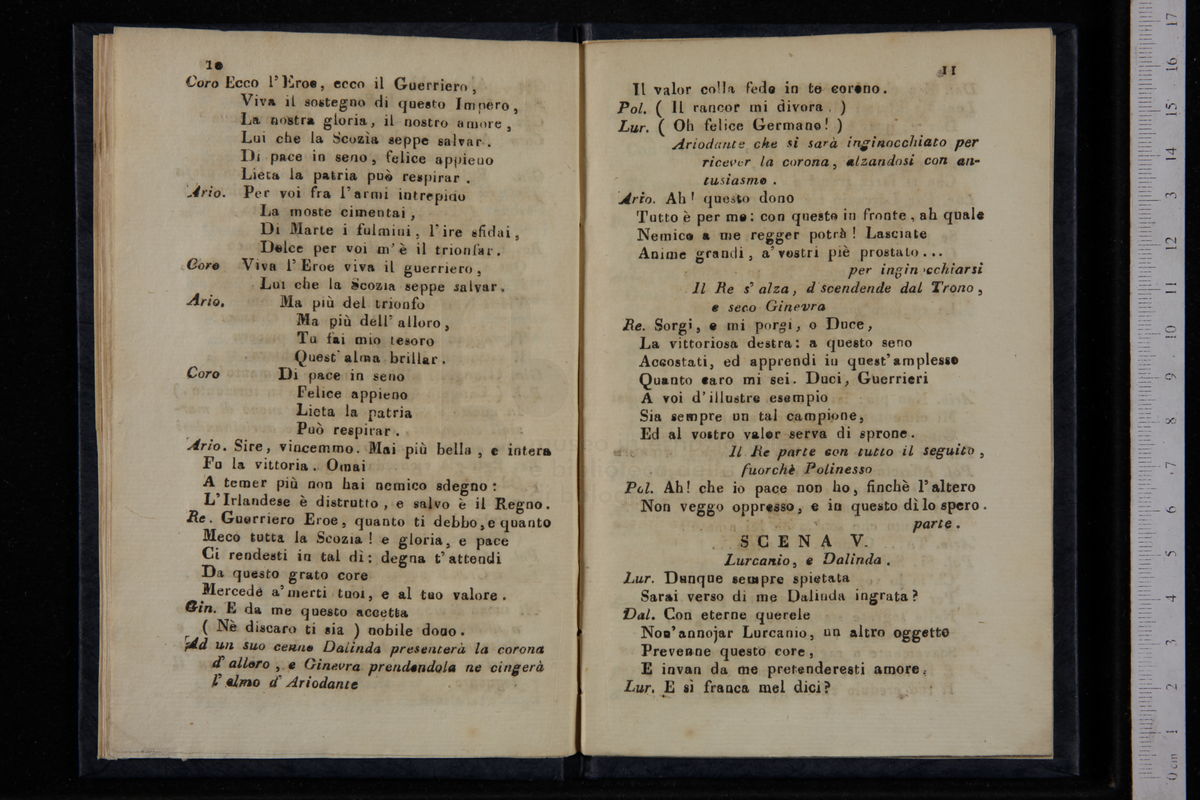 10
Coro Ecco l'Eroe, ecco il Guerriero,
Viva il sostegno di questo Impero,
La nostra gloria, il nostro amore,
Lui che la Scozia seppe salvar.
Di pace in seno, felice appieno
Lieta la patria può respirar.
Ario. Per voi fra l'armi intrepido
La moste cimentai,
Di Marte i fulmini, l'ire sfidai,
Dolce per voi m'è il trionfar.
Coro Viva l'Eroe viva il guerriero,
Lui che la Scozia seppe salvar.
Ario. Ma più del trionfo
Ma più dell' alloro,
Tu fai mio tesoro
Quest' alma brillar.
Coro Di pace in seno
Felice appieno
Lieta la patria
Può respirar.
Ario. Sire, vincemmo. Mai più bella, e intera
Fu la vittoria. Omai
A temer più non hai nemico sdegno:
L'Irlandese è distrutto, e salvo è il Regno.
Re. Guerriero Eroe, quanto ti debbo, e quanto
Meco tutta la Scozia! e gloria, e pace
Ci rendesti in tal dì: degna t'attendi
Da questo grato core
Mercede a'merti tuoi, e al tuo valore.
Gin. E da me questo accetta
( Nè discaro ti sia ) nobile dono.
Ad un suo cenno Dalinda presenterà la corona
d' alloro, e Ginevra prendendola ne cingerà
l' elmo d' Ariodante
11
Il valor colla fede in te corono.
Pol. ( Il rancor mi divora. )
Lur. ( Oh felice Germano! )
Ariodante che si sarà inginocchiato per
ricever la corona, alzandosi con en-
tusiasmo.
Ario. Ah! questo dono
Tutto è per me: con questo in fronte, ah quale
Nemico a me regger potrà! Lasciate
Anime grandi, a'vostri piè prostato...
per ingin cchiarsi
Il Re s' alza, d scendende dal Trono,
e seco Ginevra
Re. Sorgi, e mi porgi, o Duce,
La vittoriosa destra: a questo seno
Accostati, ed apprendi in quest'amplesso
Quanto caro mi sei. Duci, Guerrieri
A voi d'illustre esempio
Sia sempre un tal campione,
Ed al vostro valor serva di sprone.
Il Re parte con tutto il seguito,
fuorchè Polinesso
Pol. Ah! che io pace non ho, finchè l'altero
Non veggo oppresso, e in questo dì lo spero.
parte.
SCENA V.
Lurcanio, e Dalinda.
Lur. Dunque sempre spietata
Sarai verso di me Dalinda ingrata?
Dal. Con eterne querele
Non'annojar Lurcanio, un altro oggetto
Prevenne questo core,
E invan da me pretenderesti amore.
Lur. E sì franca mel dici?
0 cm 1 2 3 4 5 6 7 8 9 10 11 12 13 14 15 16 17